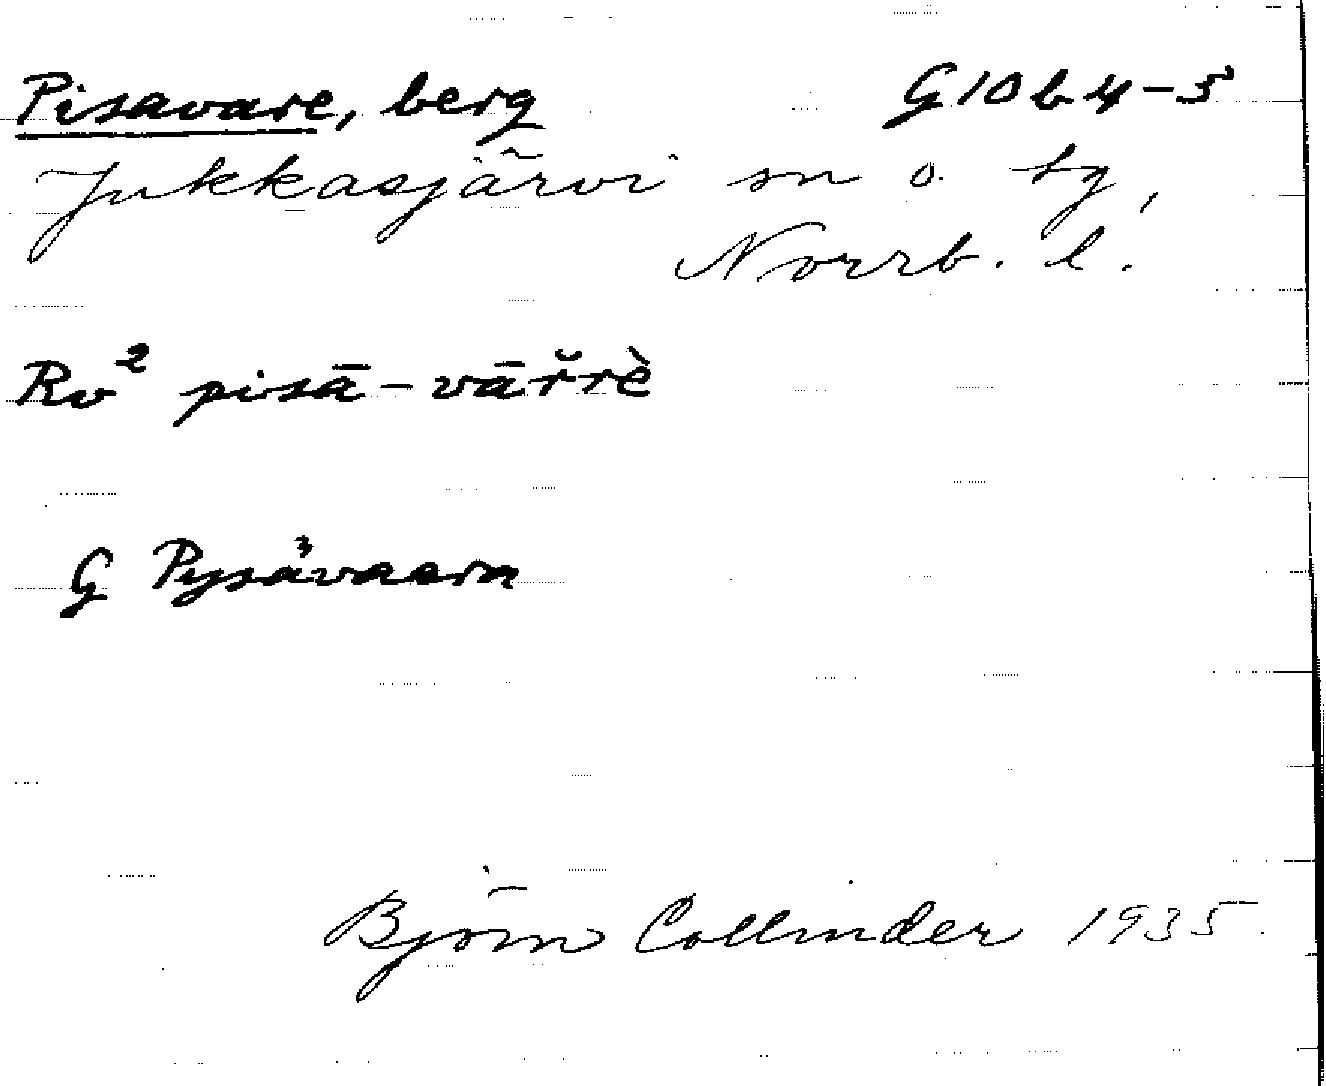 Pisavare, berg G10b4-5
Jukkasjärvi sn o. tg,
Norrb. l.
Rv² pisā-vāřrè
G Pysåvaara
Björn Collinder 1935.